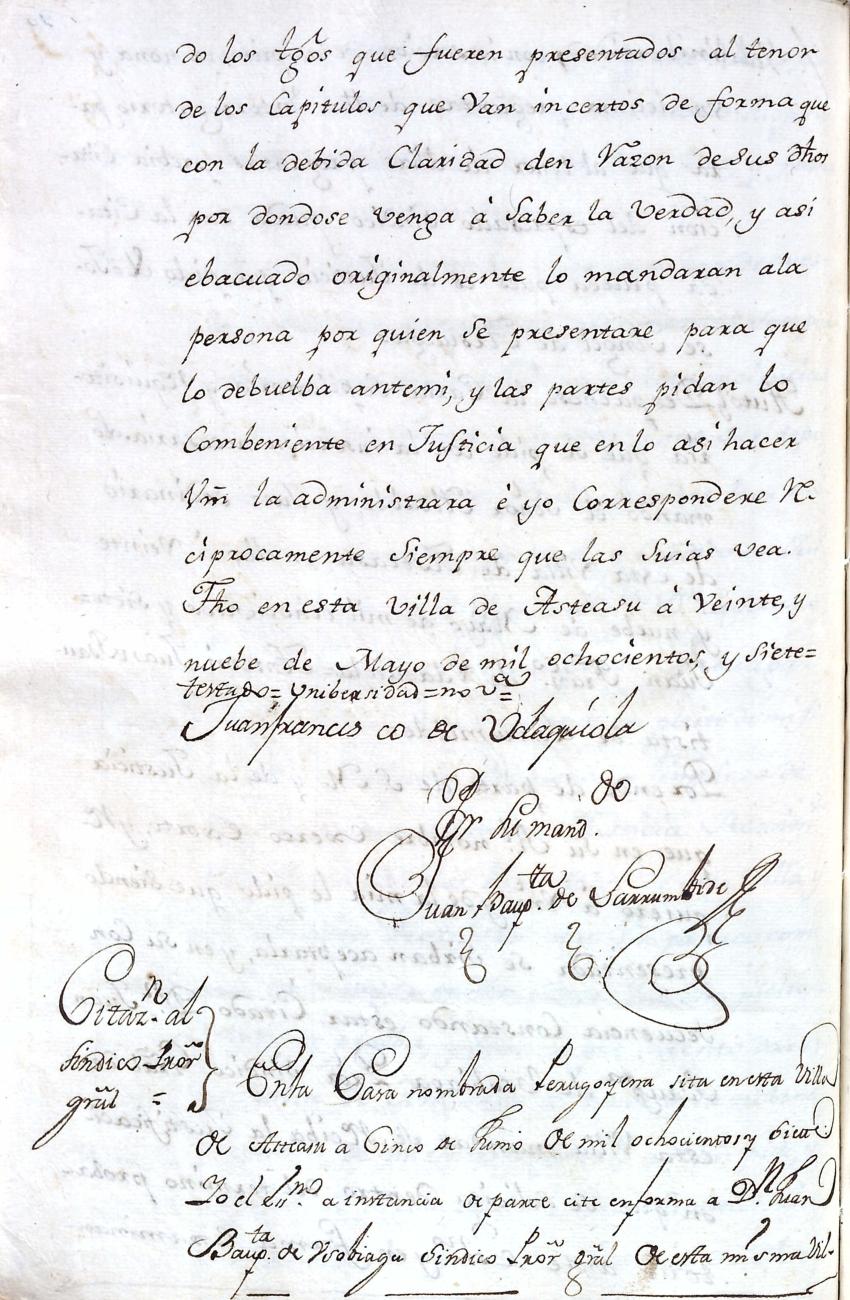 do los tgos que fueren presentados al tenor
de los Capitulos que Van incertos de forma que
con la debida Claridad den Razon de sus dhos
por dondose venga à Saber la Verdad, y asi
ebacuado originalmente lo mandaran ala
persona por quien se presentare para que
lo debuelba antemi, y las partes pidan lo
Combeniente en Justicia que enlo asi hacer
Vm la administrara è yo Correspondere Re-
ciprocamente Siempre que las Suias vea.
Fho en esta Villa de Asteasu à Veinte, y
nuebe de Mayo de mil ochocientos, y siete=
testado= Unibersidad= no va=
Juan francisco de Vdaquiola
Por su mando
Juan Baupta de Larrumbide
Citazn al
Sindico Pror
gral =
Enla Casa nombrada Perugoyena sita en esta Villa
de Asteasu a Cinco de Junio de mil ochocientos y Siete
Yo el Srno a instancia de parte cite en forma a Dn Juan
Baupta de Vsobiaga Sindico Pror gral de esta misma Vil-